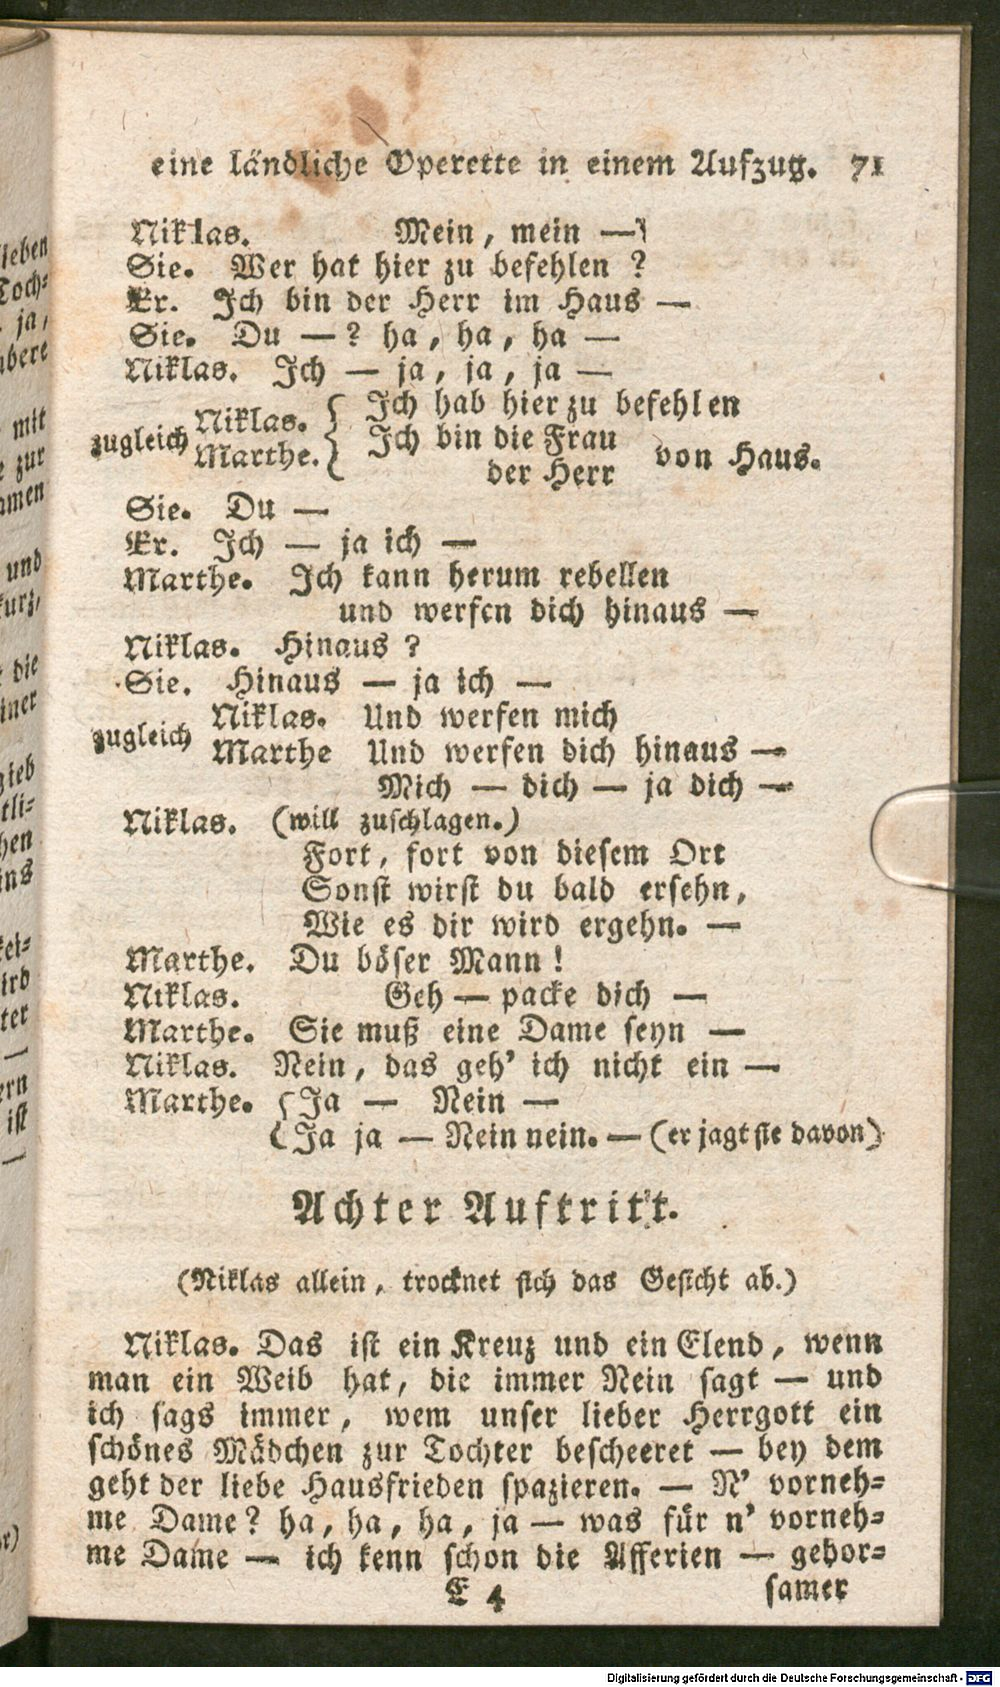 eine ländliche Operette in einem Aufzug. 71
Niklas. Mein, mein —
Sie. Wer hat hier zu befehlen ?
Er. Ich bin der Herr im Haus —
Sie. Du — ? ha, ha, ha —
Niklas. Ich — ja, ja, ja —
zugleich Niklas. { Ich hab hier zu befehlen
Marthe. Ich bin die Frau
der Herr von Haus.
Sie. Du —
Er. Ich — ja ich —
Marthe. Ich kann herum rebellen
und werfen dich hinaus —
Niklas. Hinaus ?
Sie. Hinaus — ja ich —
zugleich Niklas. Und werfen mich
Marthe Und werfen dich hinaus —
Mich — dich — ja dich —
Niklas. (will zuschlagen.)
Fort, fort von diesem Ort
Sonst wirst du bald ersehn,
Wie es dir wird ergehn. —
Marthe. Du böser Mann !
Niklas. Geh — packe dich —
Marthe. Sie muß eine Dame seyn —
Niklas. Nein, das geh' ich nicht ein —
Marthe. { Ja — Nein —
Ja ja — Nein nein. — (er jagt sie davon)
Achter Auftritt.
(Niklas allein, trocknet sich das Gesicht ab.)
Niklas. Das ist ein Kreuz und ein Elend, wenn
man ein Weib hat, die immer Nein sagt — und
ich sags immer, wem unser lieber Herrgott ein
schönes Mädchen zur Tochter bescheeret — bey dem
geht der liebe Hausfrieden spazieren. — N' vorneh=
me Dame? ha, ha, ha, ja — was für n' vorneh=
me Dame — ich kenn schon die Afferien — gehor=
E 4 samer
ieben
Toch=
ja,
mit
zur
und
kurz,
die
Digitalisierung gefördert durch die Deutsche Forschungsgemeinschaft - DFG